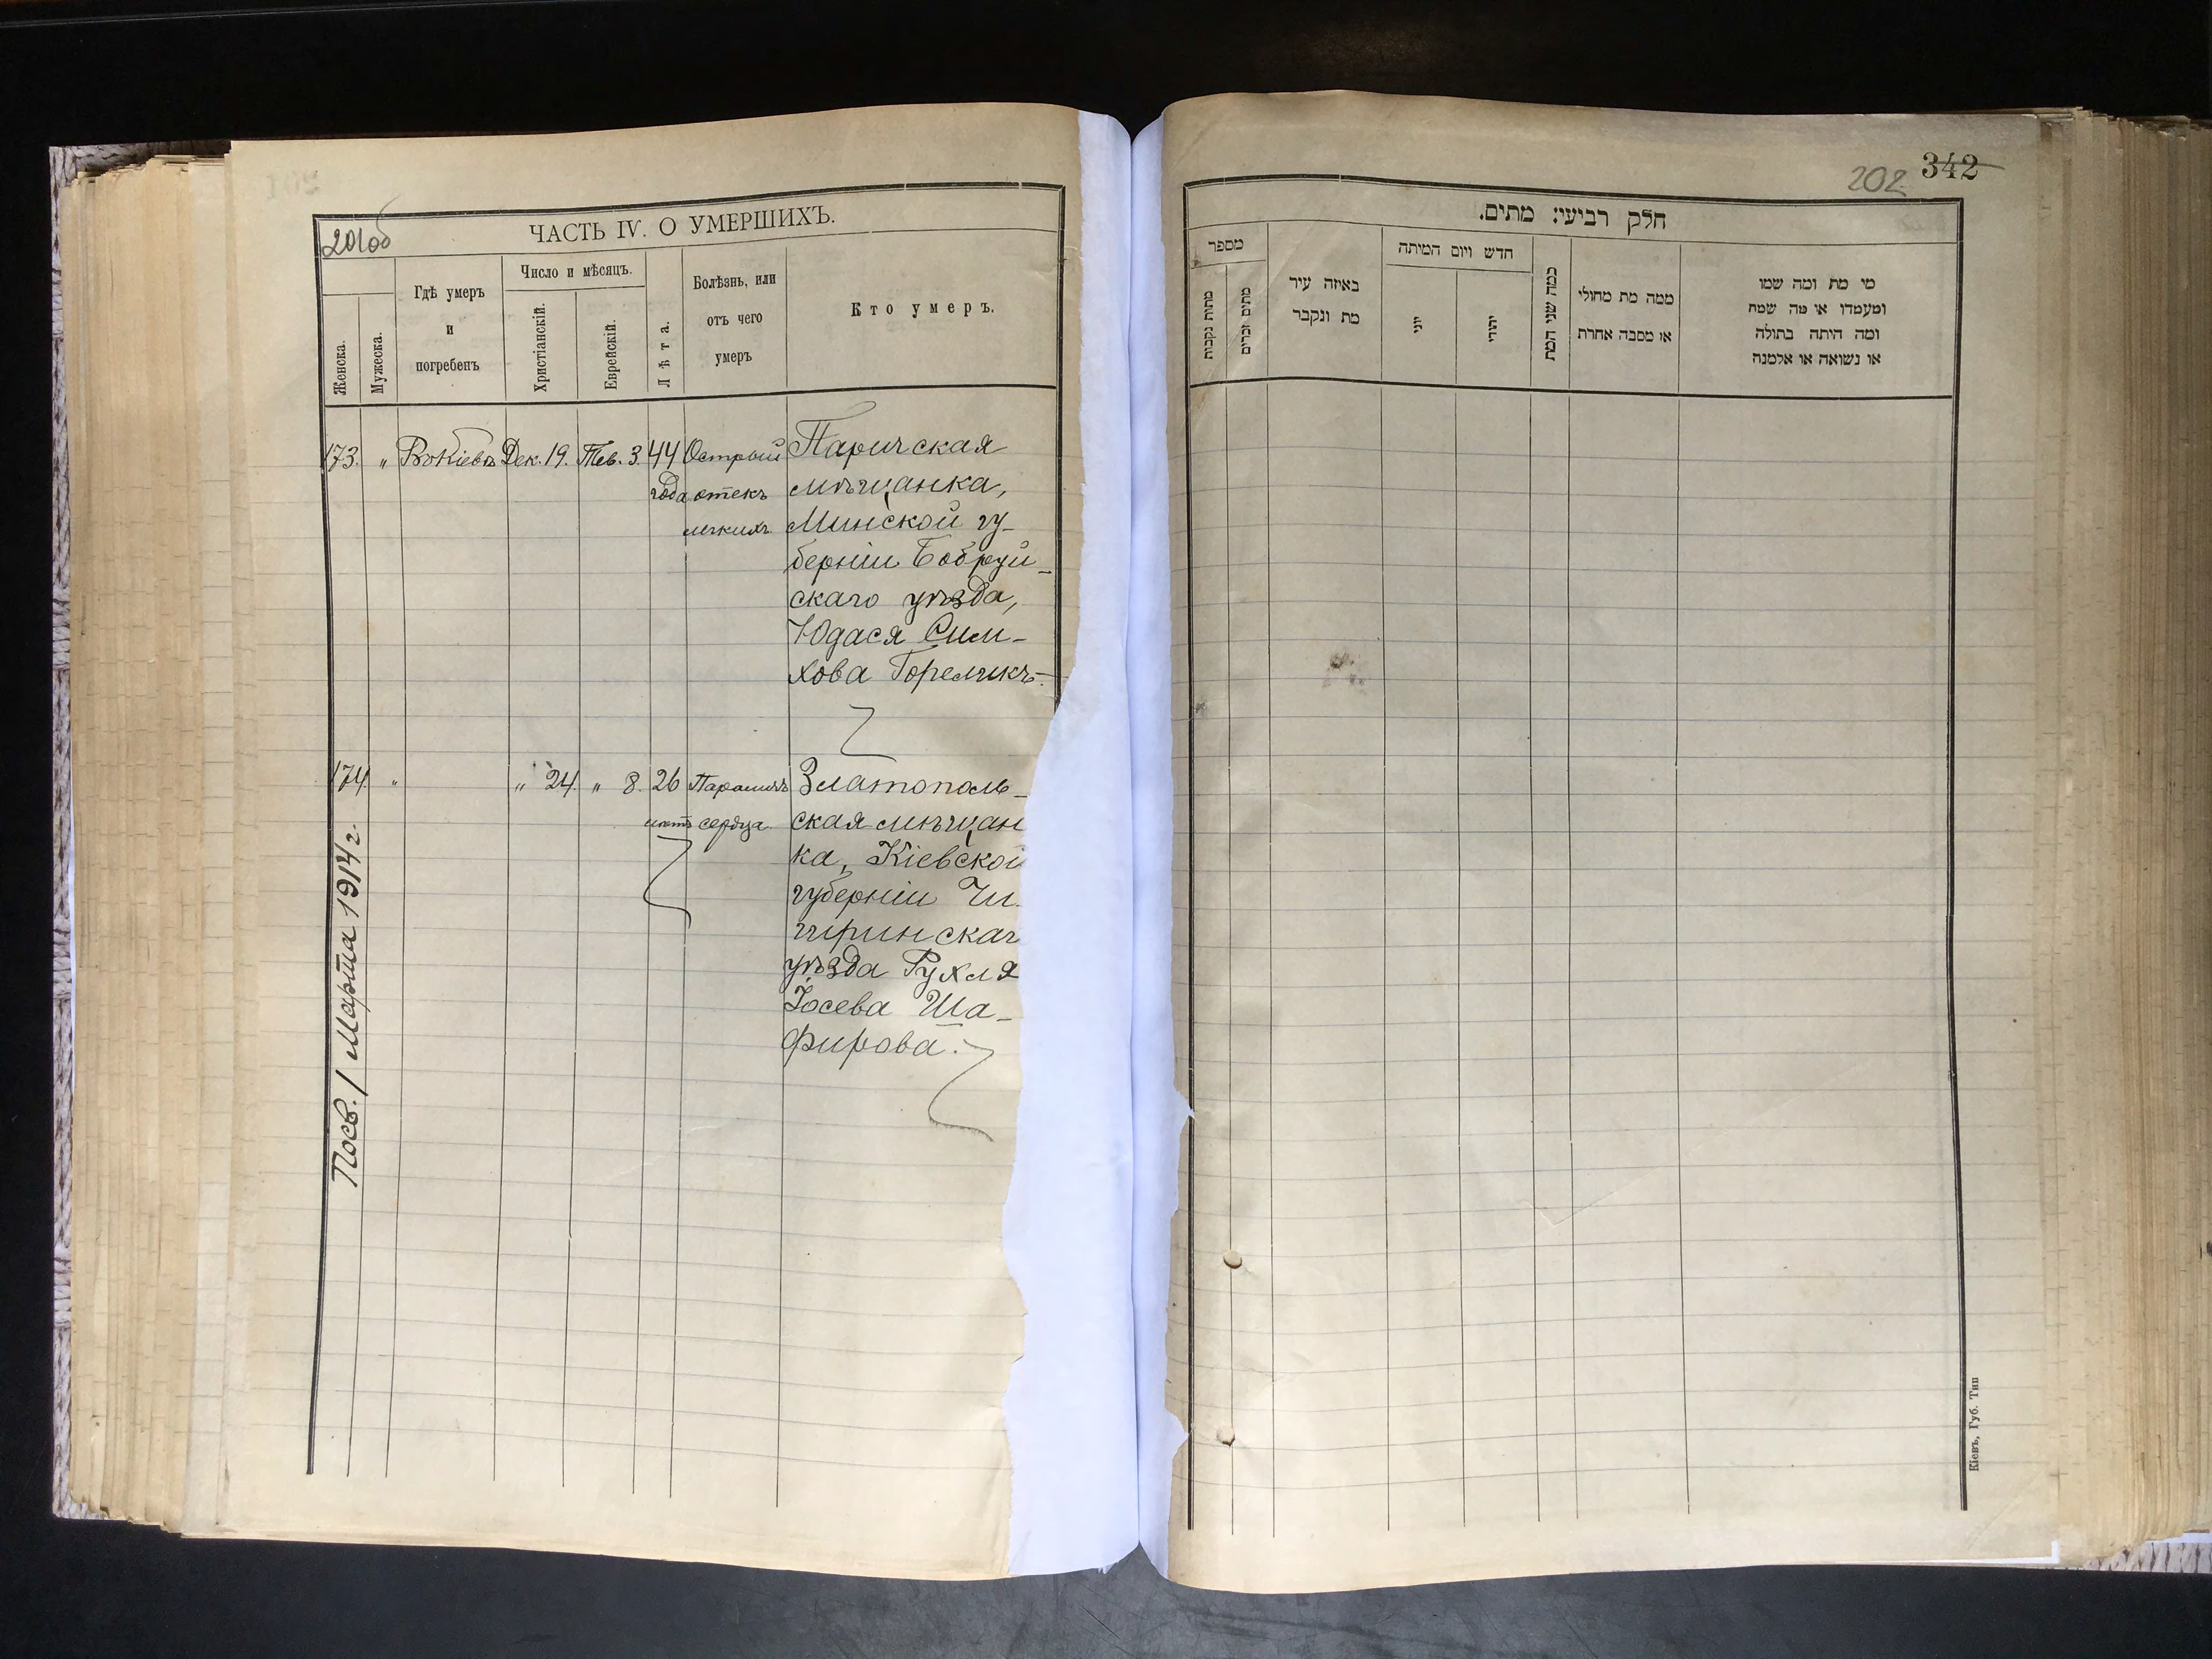 201об
ЧАСТЬ IV. О УМЕРШИХЪ.
Женска.
Мужеска.
Гдѣ умеръ
и
погребенъ
Число и мѣсяцъ.
Христіанскій.
Еврейскій.
Лѣта.
Болѣзнь, или
отъ чего
умеръ
Кто умеръ.
173. „ Въ Кіевѣ Дек. 19. Тев. 3. 44 Острый Паричская
года отекъ мѣщанка,
легкихъ. Минской гу-
берніи Бобруй-
скаго уѣзда,
Юдася Сим-
хова Гореликъ.
174. „ „ 24. „ 8. 26 Параличъ Златополь-
лѣтъ сердца. ская мѣщан
ка, Кіевской
губерніи Чи-
гиринскаг
уѣзда Рухля
Іосева Ша-
фирова.
Посв. 1 Марта 1914 г.
202
342
חלק רביעי: מתים.
מספר
מתות נקבות
מתים זכרים
באיזה עיר
מת ונקבר
חדש ויום המיתה
יוני
יהודי
כמה שני המת
ממה מת מחולי
או מסבה אחרת
מי מת ומה שמו
ומעמדו או מה שמה
ומה היתה בתולה
או נשואה או אלמנה
Кіевъ, Губ. Тип